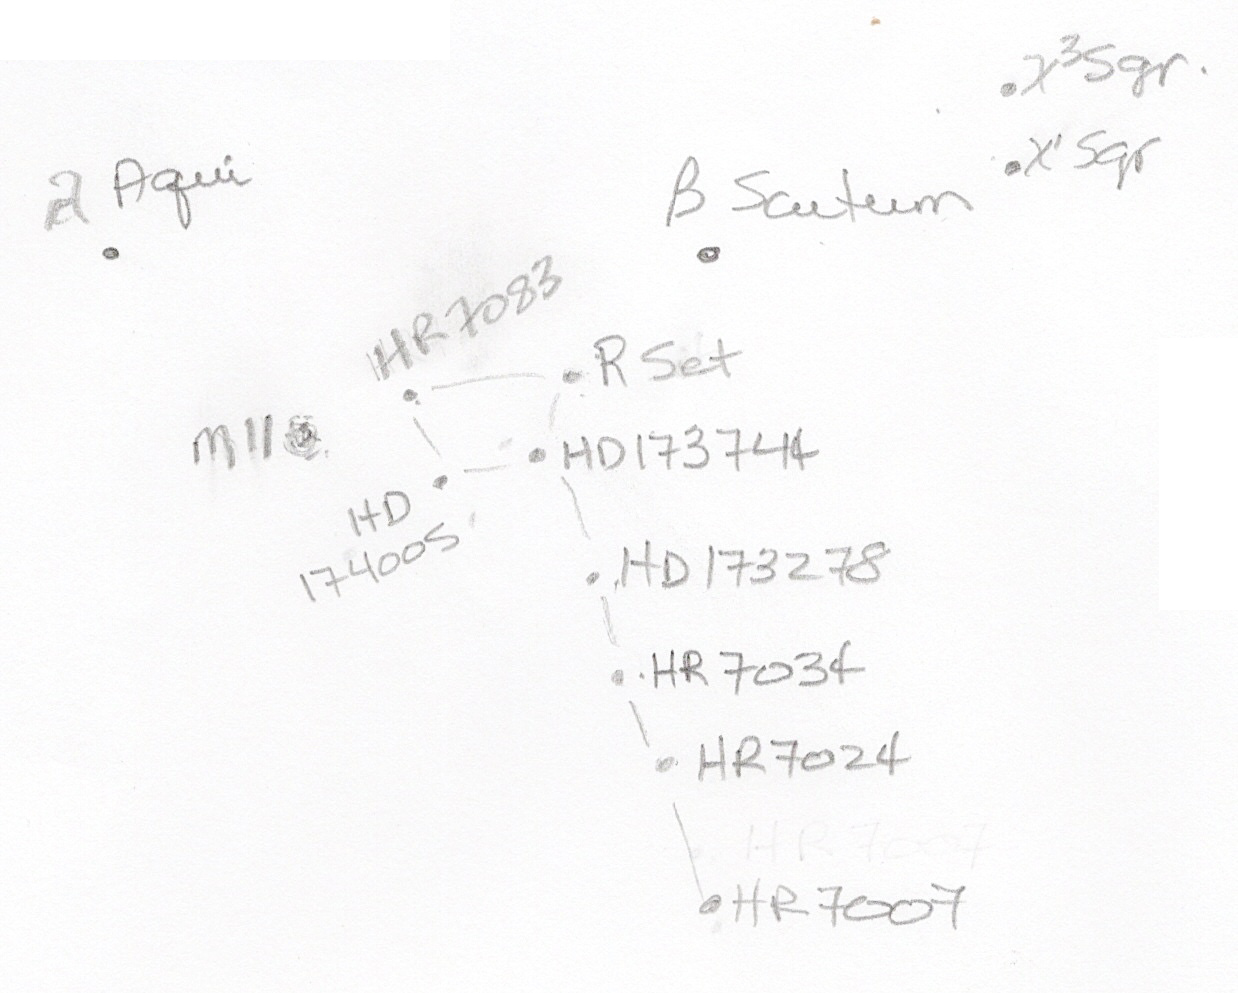 χ³Sgr.
χ'Sgr
λ Aqui
β Scutum
HR7083
R Sct
M11
HD173744
HD
174005
HD173278
HR7034
HR7024
HR7007
HR7007